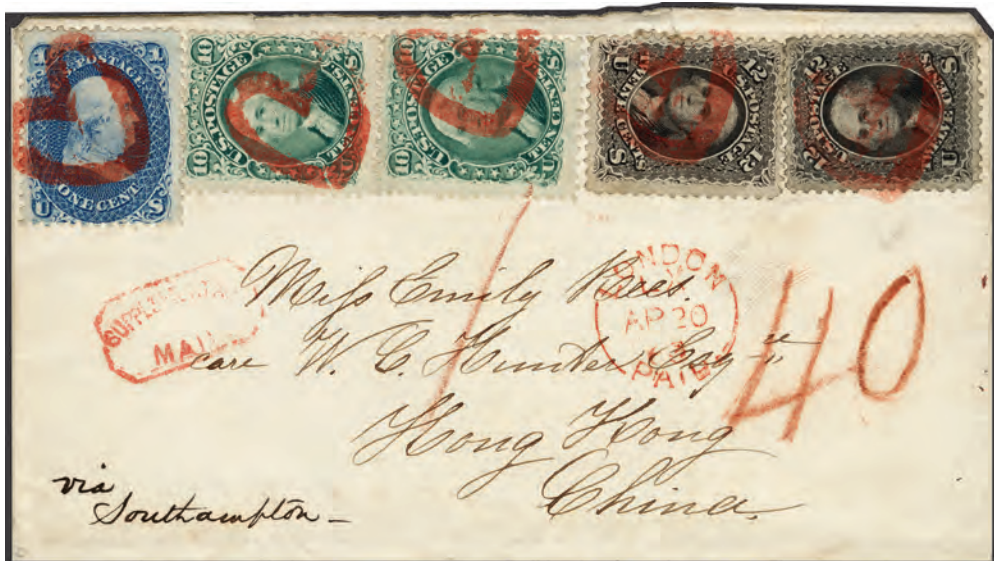 U.S. POSTAGE
ONE CENT
U S
10 U.S. POSTAGE 10
TEN CENTS
U S
10 U.S. POSTAGE
TEN CENTS
U S
12 U.S. POSTAGE 12
TWELVE CENTS
U S
12 U.S. POSTAGE 12
TWELVE CENTS
U S
SUPPLEMENTARY
MAIL
LONDON
AP 20
PAID
40
Miss Emily Rees.
care W. C. Hunter Esqre
Hong Kong
China.
via
Southampton